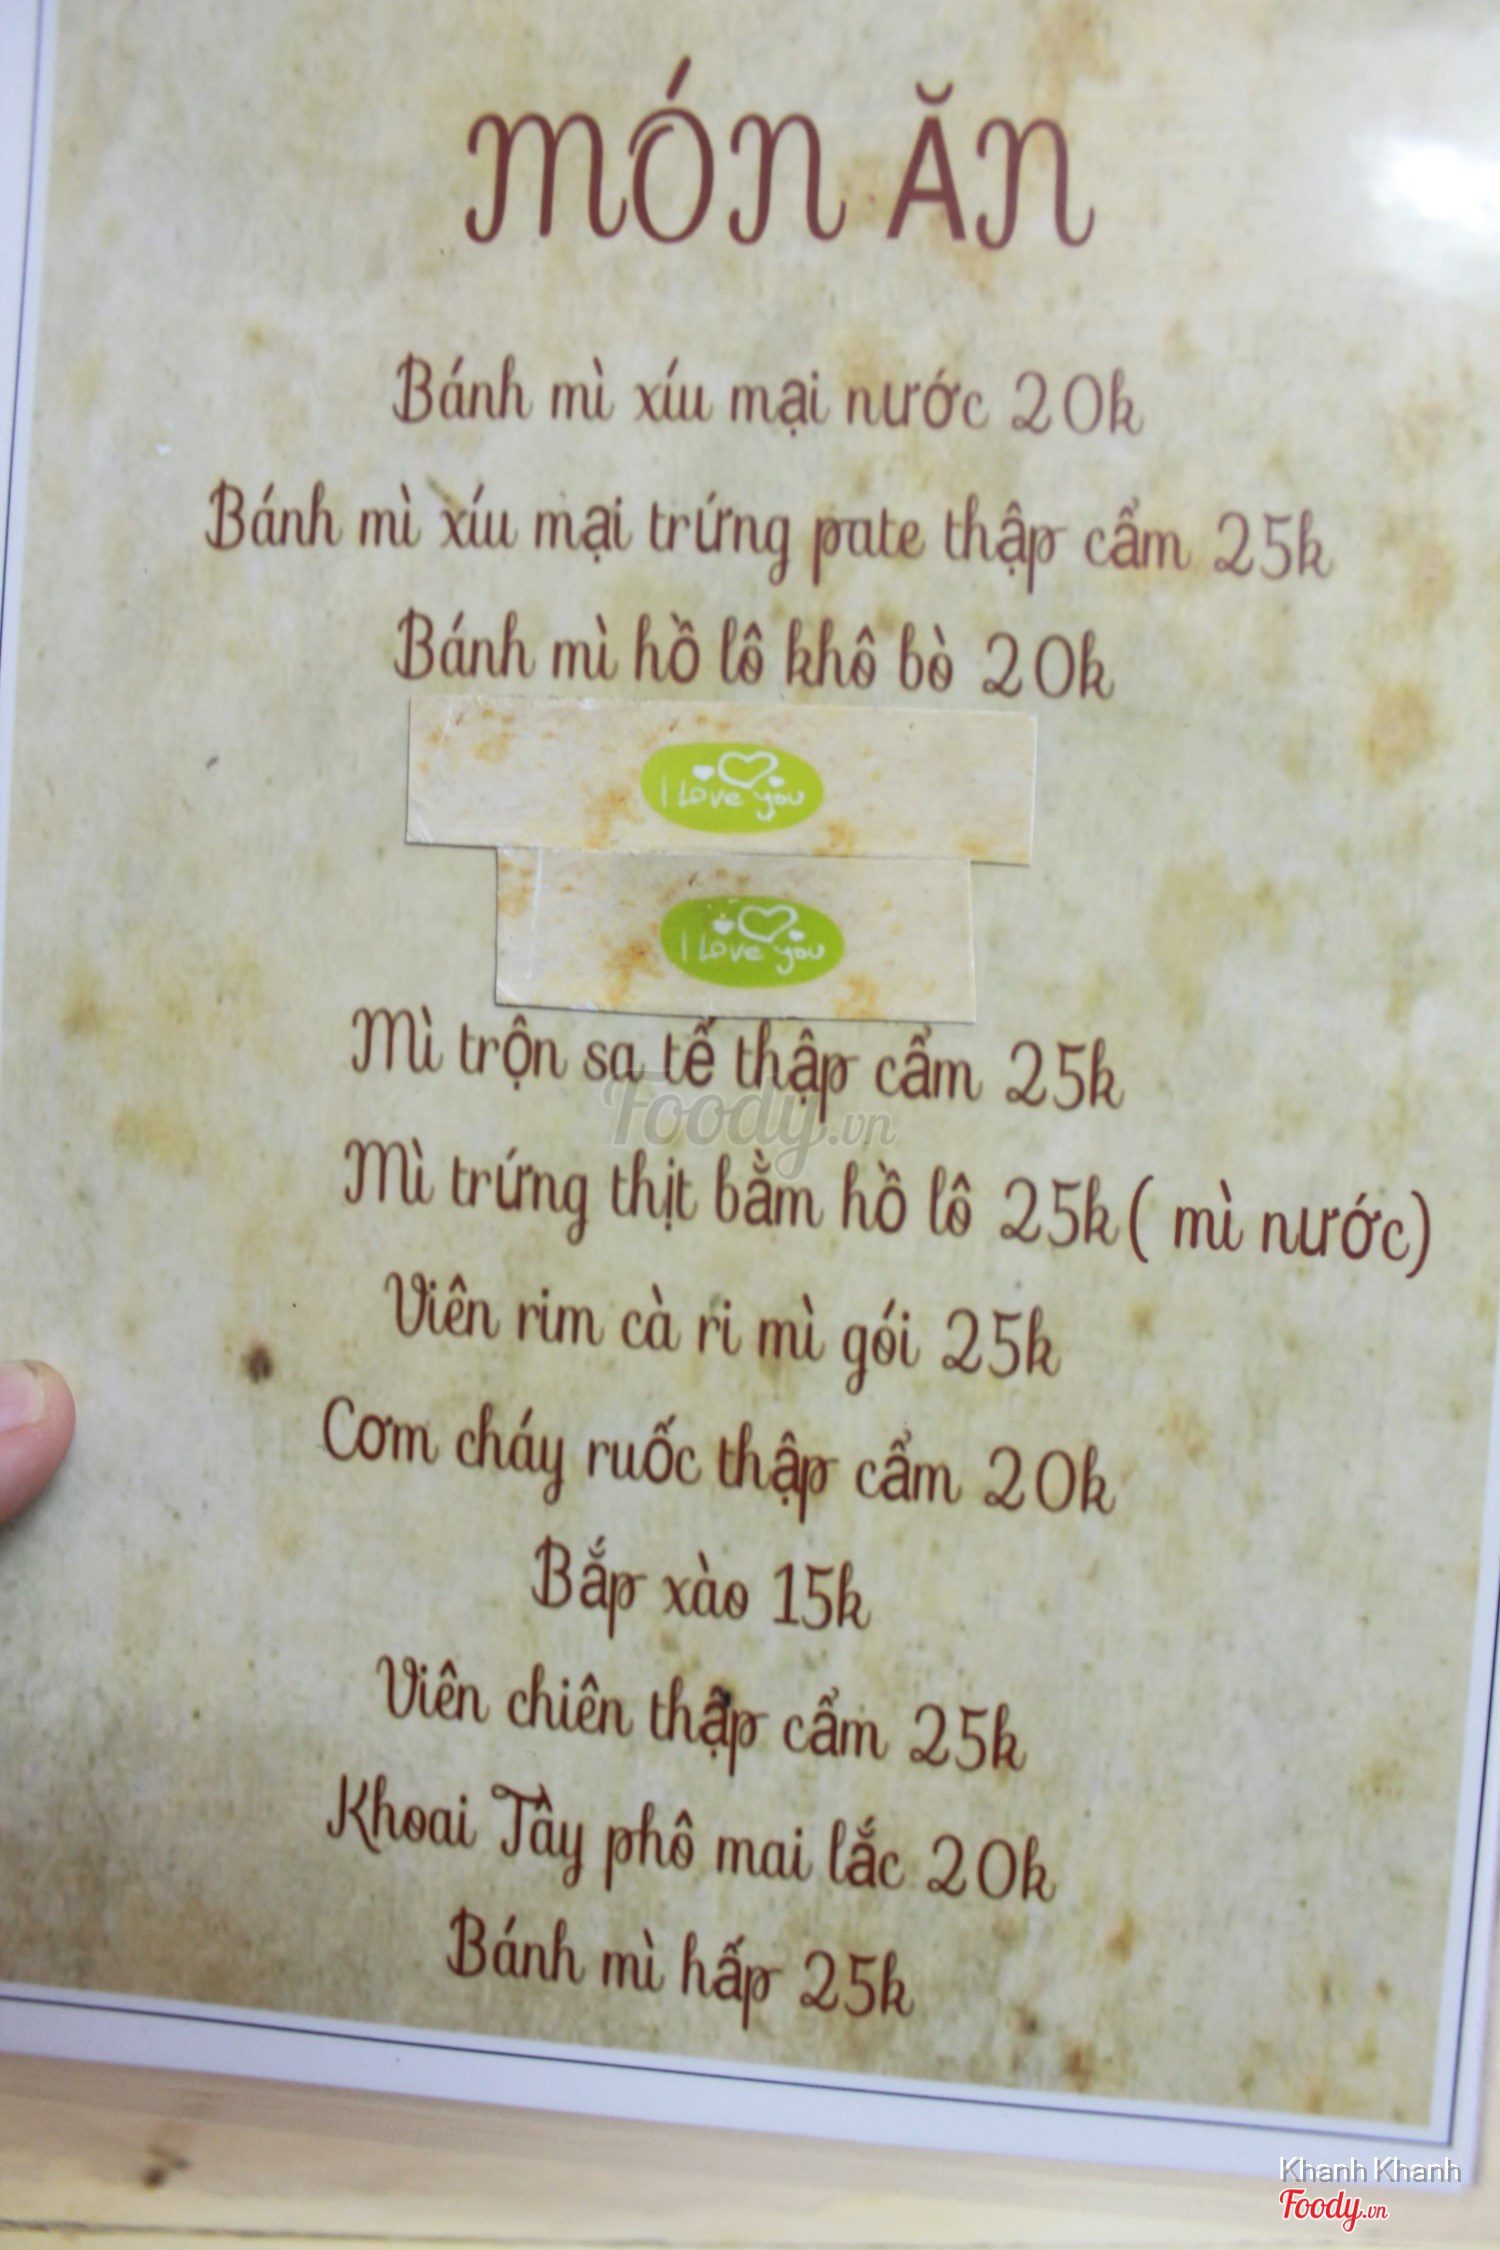 MÓN ĂN
Bánh mì xíu mại nước 20k
Bánh mì xíu mại trứng pate thập cẩm 25k
Bánh mì hồ lô khô bò 20k
I Love you
I Love you
Mì trộn sa tế thập cẩm 25k
Foody.vn
Mì trứng thịt bằm hồ lô 25k ( mì nước)
Viên rim cà ri mì gói 25k
Cơm cháy ruốc thập cẩm 20k
Bắp xào 15k
Viên chiên thập cẩm 25k
Khoai Tây phô mai lắc 20k
Bánh mì hấp 25k
Khanh Khanh
Foody.vn